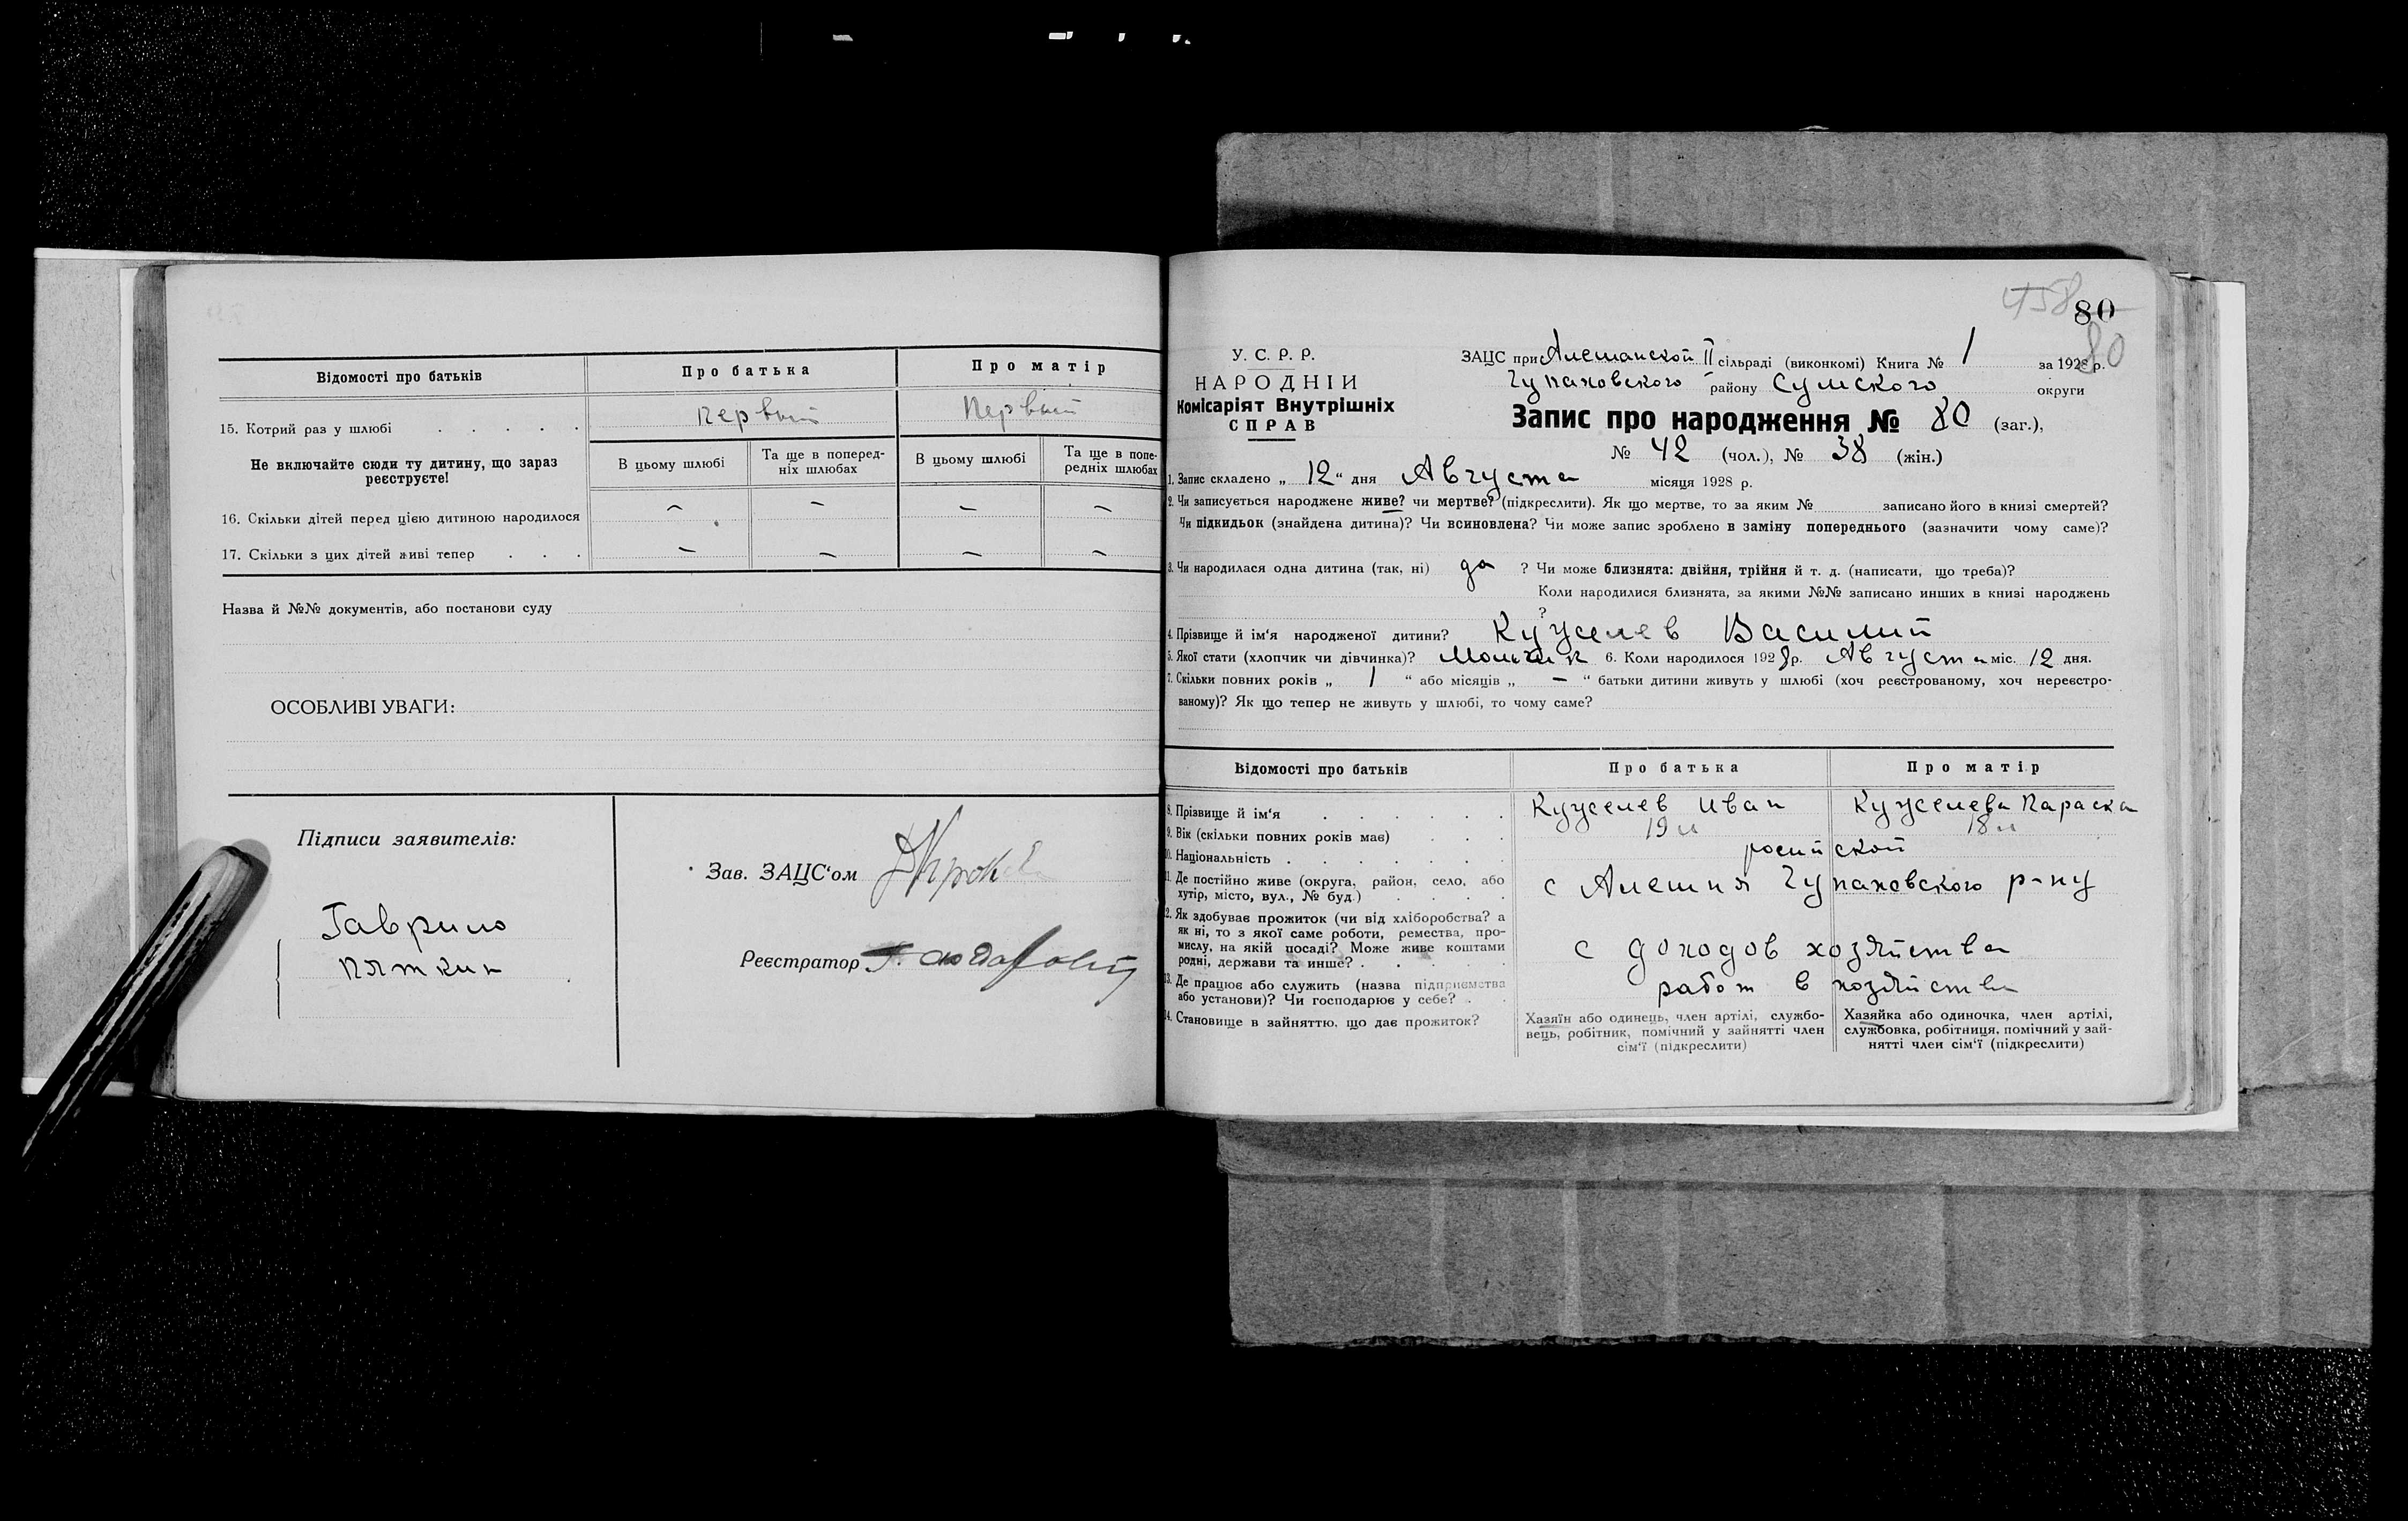 Відомості про батьків
Про батька
Про матір
15. Котрий раз у шлюбі . . . . .
Первый
Первый
Не включайте сюди ту дитину, що зараз
реєструєте!
В цьому шлюбі
Та ще в поперед-
ніх шлюбах
В цьому шлюбі
Та ще в попе-
редніх шлюбах
16. Скільки дітей перед цією дитиною народилося
—
—
—
—
17. Скільки з цих дітей живі тепер . . .
—
—
—
—
Назва й №№ документів, або постанови суду
ОСОБЛИВІ УВАГИ:
Підписи заявителів:
Гаврило
Пяткин
Зав. ЗАЦС‘ом
Реєстратор
458
80
80
У. С. Р. Р.
НАРОДНІЙ
Комісаріят Внутрішніх
СПРАВ
ЗАЦС при Алешанской II сільраді (виконкомі) Книга № 1 за 1928 р.
Чупаховского району Сумского округи
Запис про народження № 80 (заг.),
№ 42 (чол.), № 38 (жін.)
1. Запис складено „ 12 “ дня Августа місяця 1928 р.
2. Чи записується народжене живе? чи мертве? (підкреслити). Як що мертве, то за яким № записано його в книзі смертей?
Чи підкидьок (знайдена дитина)? Чи всиновлена? Чи може запис зроблено в заміну попереднього (зазначити чому саме)?
3. Чи народилася одна дитина (так, ні) да ? Чи може близнята: двійня, трійня й т. д. (написати, що треба)?
Коли народилися близнята, за якими №№ записано инших в книзі народжень
?
4. Прізвище й ім‘я народженої дитини? Кужелев Василий
5. Якої стати (хлопчик чи дівчинка)? Мальчик 6. Коли народилося 1928 р. Августа міс. 12 дня.
7. Скільки повних років „ 1 “ або місяців „ — “ батьки дитини живуть у шлюбі (хоч реєстрованому, хоч нереєстро-
ваному)? Як що тепер не живуть у шлюбі, то чому саме?
Відомості про батьків
Про батька
Про матір
8. Прізвище й ім‘я . . . . . .
Кужелев Иван
Кужелева Параска
9. Вік (скільки повних років має) . . .
19 л
18 л
10. Національність . . . . . . .
росийской
11. Де постійно живе (округа, район, село, або
хутір, місто, вул., № буд.) . . . .
с Алешня Чупаховского р-ну
12. Як здобуває прожиток (чи від хліборобства? а
як ні, то з якої саме роботи, ремества, про-
мислу, на якій посаді? Може живе коштами
родні, держави та инше? . . . . .
с доходов хозяйства
13. Де працює або служить (назва підприємства
або установи)? Чи господарює у себе? . .
работ в хозяйстве
14. Становище в зайняттю, що дає прожиток?
Хазяїн або одинець, член артілі, службо-
вець, робітник, помічний у зайнятті член
сім‘ї (підкреслити)
Хазяйка або одиночка, член артілі,
службовка, робітниця, помічний у зай-
нятті член сім‘ї (підкреслити)